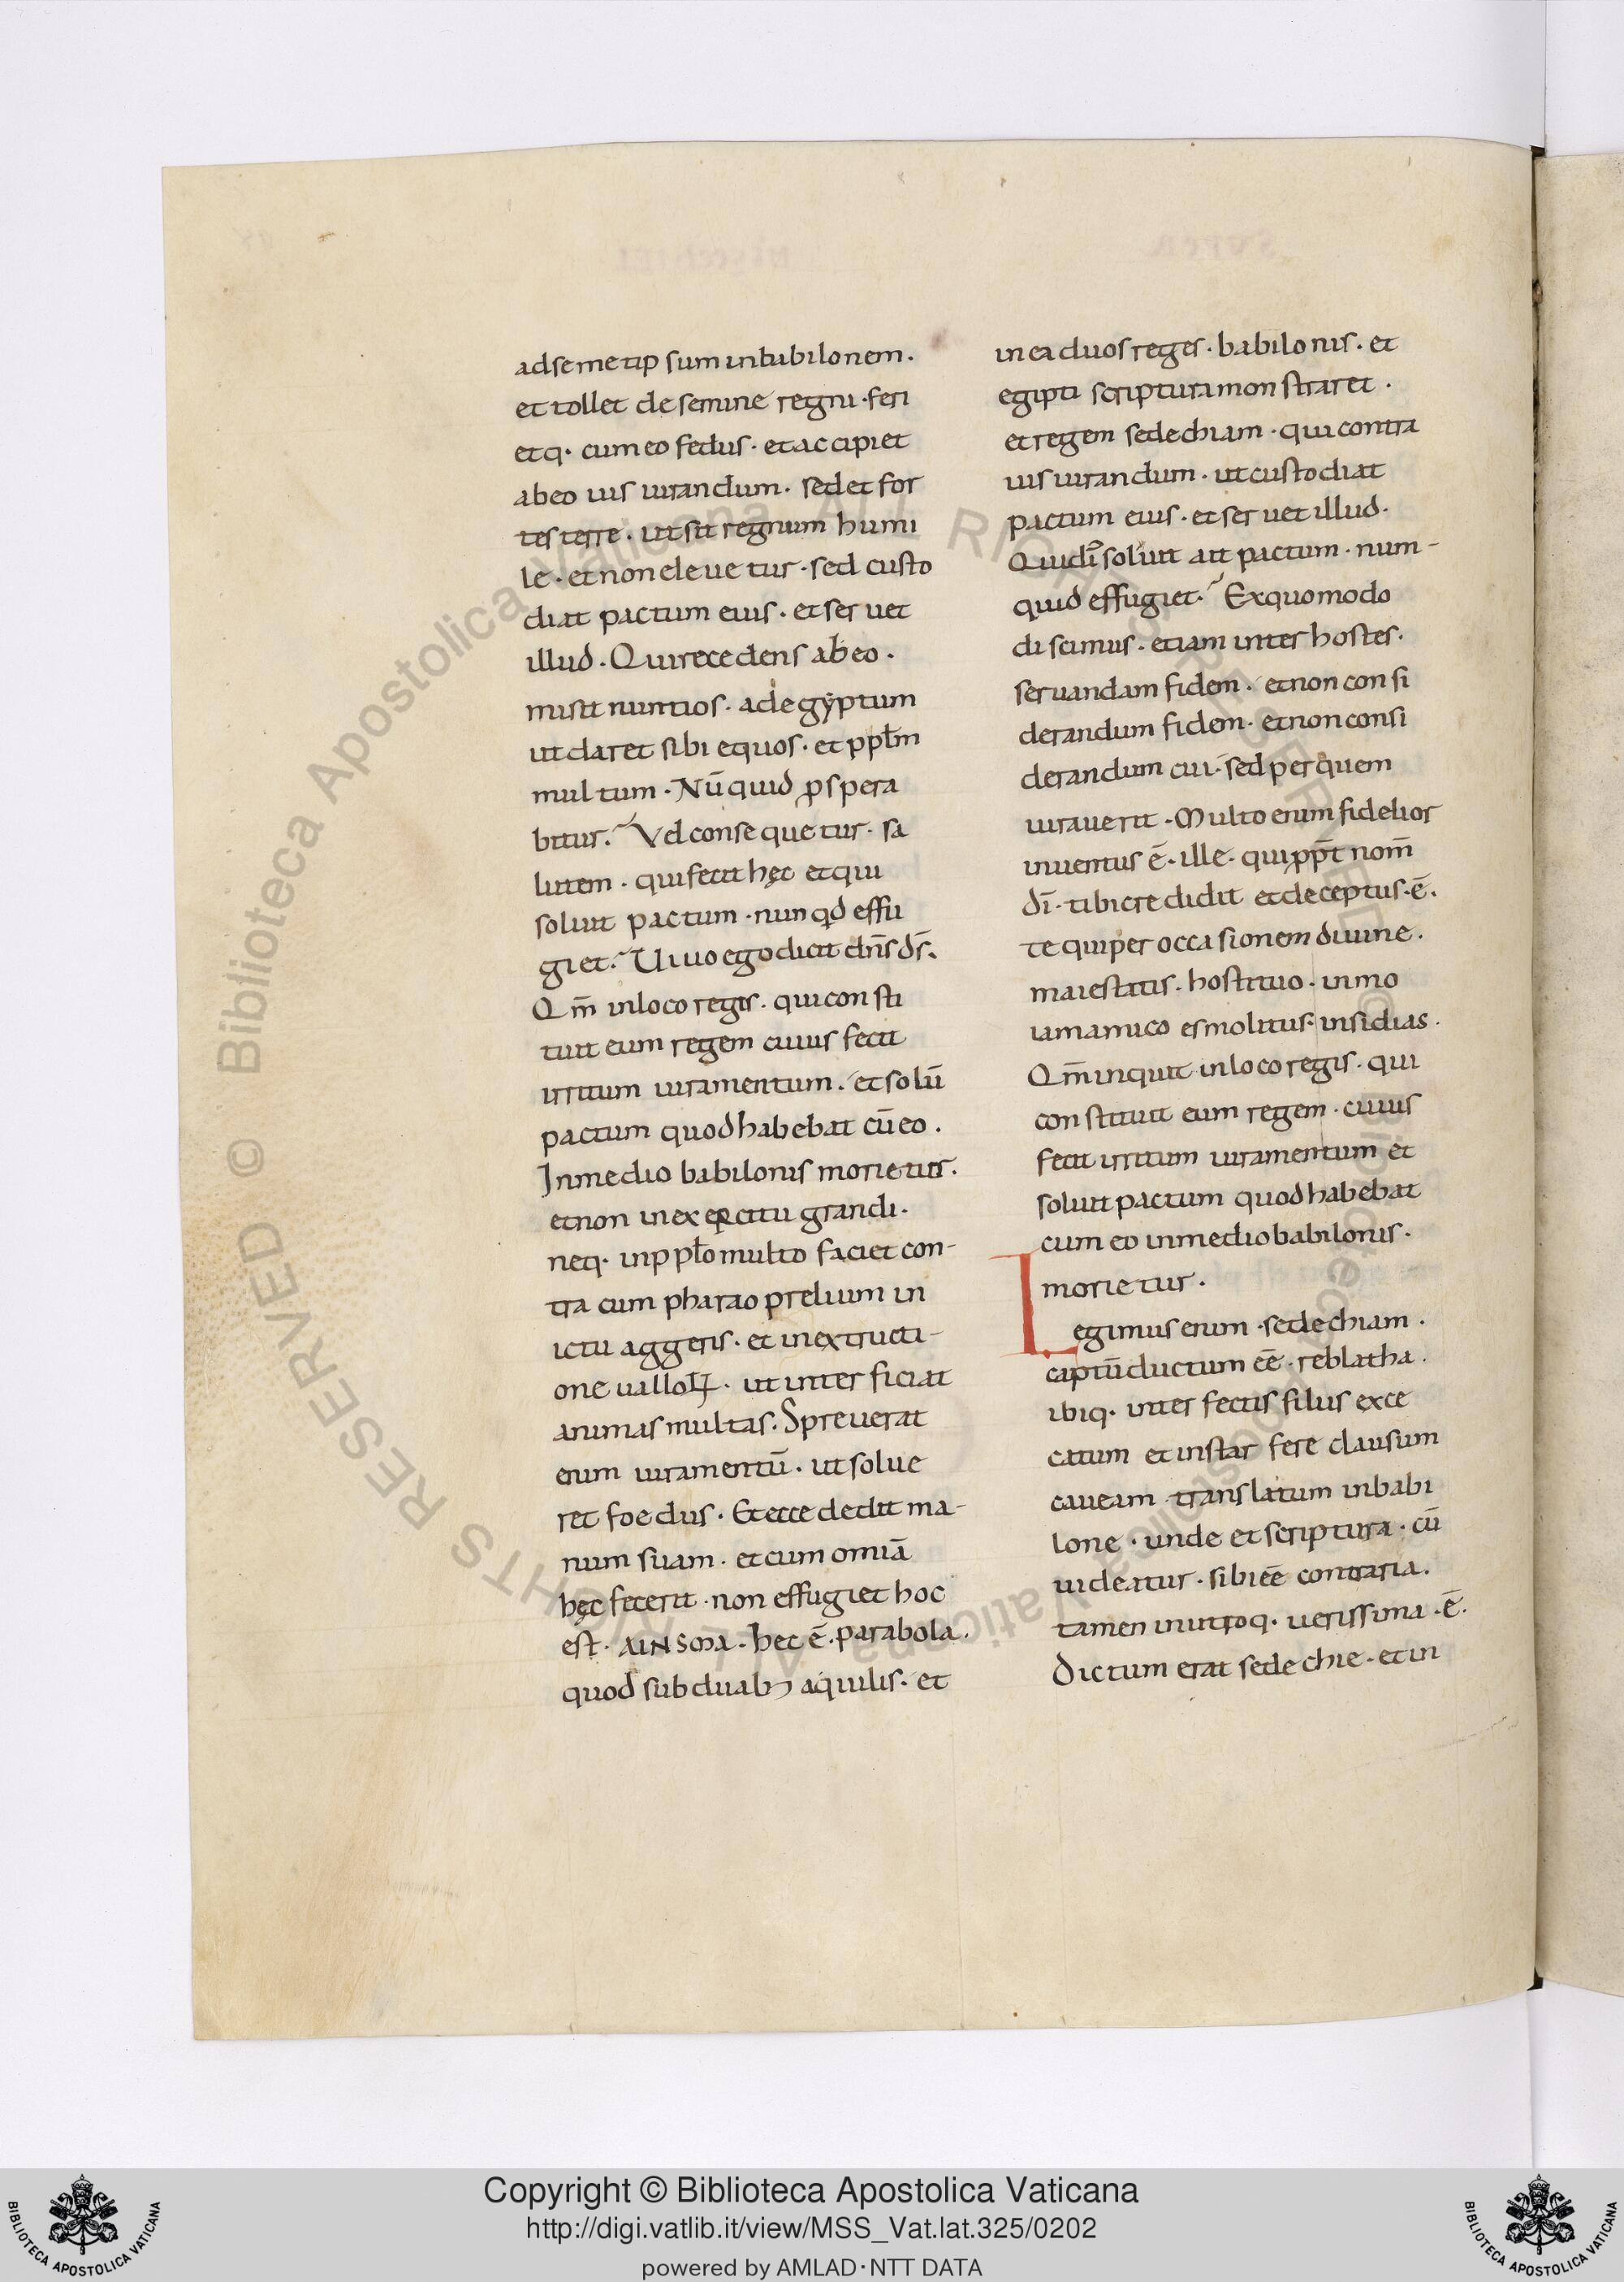 adsemetip sum inbabilonem.
et tollet de semine regni · feri
etq· cum eo fedus · et accipiet
abeo uis iurandum · sed et for
tes terre · ut sit regnum humi
le · et non eleue tur · sed custo
diat pactum eius · et ser uet
illud · Qui recedens ab eo ·
misit nuntios · ad egyptum
ut daret sibi equos · et ppłm
multum · Nū quid pspera
bitur. Vel conse que tur · sa
lutem · qui fecit hęc et qui
soluit pactum · nun qd effu
giet. Uiuo ego dicit dn̄s ds̄.
Qm̄ inloco regis · qui con sti
tuit eum regem cuius fecit
irritum iuramentum · et solū
pactum quod habebat cū eo .
Inmedio babilonis morietur.
et non in ex ercitu grandi ·
neq· inp płomulto faciet con-
tra cum pharao prelium in
ictu aggeris · et in extructi-
one ualloꝝ · ut inter ficiat
animas multas. Spreuerat
enim iuramentū · ut solue
ret foedus · Et ecce dedit ma-
num suam · et cum omīa
hęc fecerit · non effugiet hoc
est · AINSMA · hec ē · parabola.
quod sub duab; aquilis · et
in ea duos reges · babilonis · et
egipti scriptura mon straret ·
et regem sedechiam · qui contra
uis iurandum · ut custodiat
pactum eius · et ser uet illud ·
Qui dī soluit ait pactum · num-
quid effugiet. Ex quomodo
discimus · etiam inter hostes ·
seruandam fidem · et non con si
derandum fidem · et non consi
derandum cui · sed per quem
iurauerit · Multo enim fidelior
inuentus ē · ille · qui ppt̄ nom̄
dī · tibi credidit et deceptus · ē ·
te qui per occa sionem diuine .
maiestatis · hosti tuo · inmo
iam amico es molitus · insidias ·
Qm̄ inquit inloco regis · qui
con stituit eum regem · cuius
fecit irritum iuramentum et
soluit pactum quod habebat
cum eo inmedio babilonis ·
morie tur ·
Legimus enim · sedechiam ·
captū ductum eē · reblatha ·
ibiq· inter fectis filiis exce
catum et instar fere clausum
caueam · translatum inbabi
lone · unde et scriptura · cū
uideatur · sibi eē contraria .
tamen inutroq· uerissima · ē ·
Dictum erat sede chie · et in
Copyright © Biblioteca Apostolica Vaticana
http://digi.vatlib.it/view/MSS_Vat.lat.325/0202
powered by AMLAD·NTT DATA
BIBLIOTECA APOSTOLICA VATICANA
BIBLIOTECA APOSTOLICA VATICANA